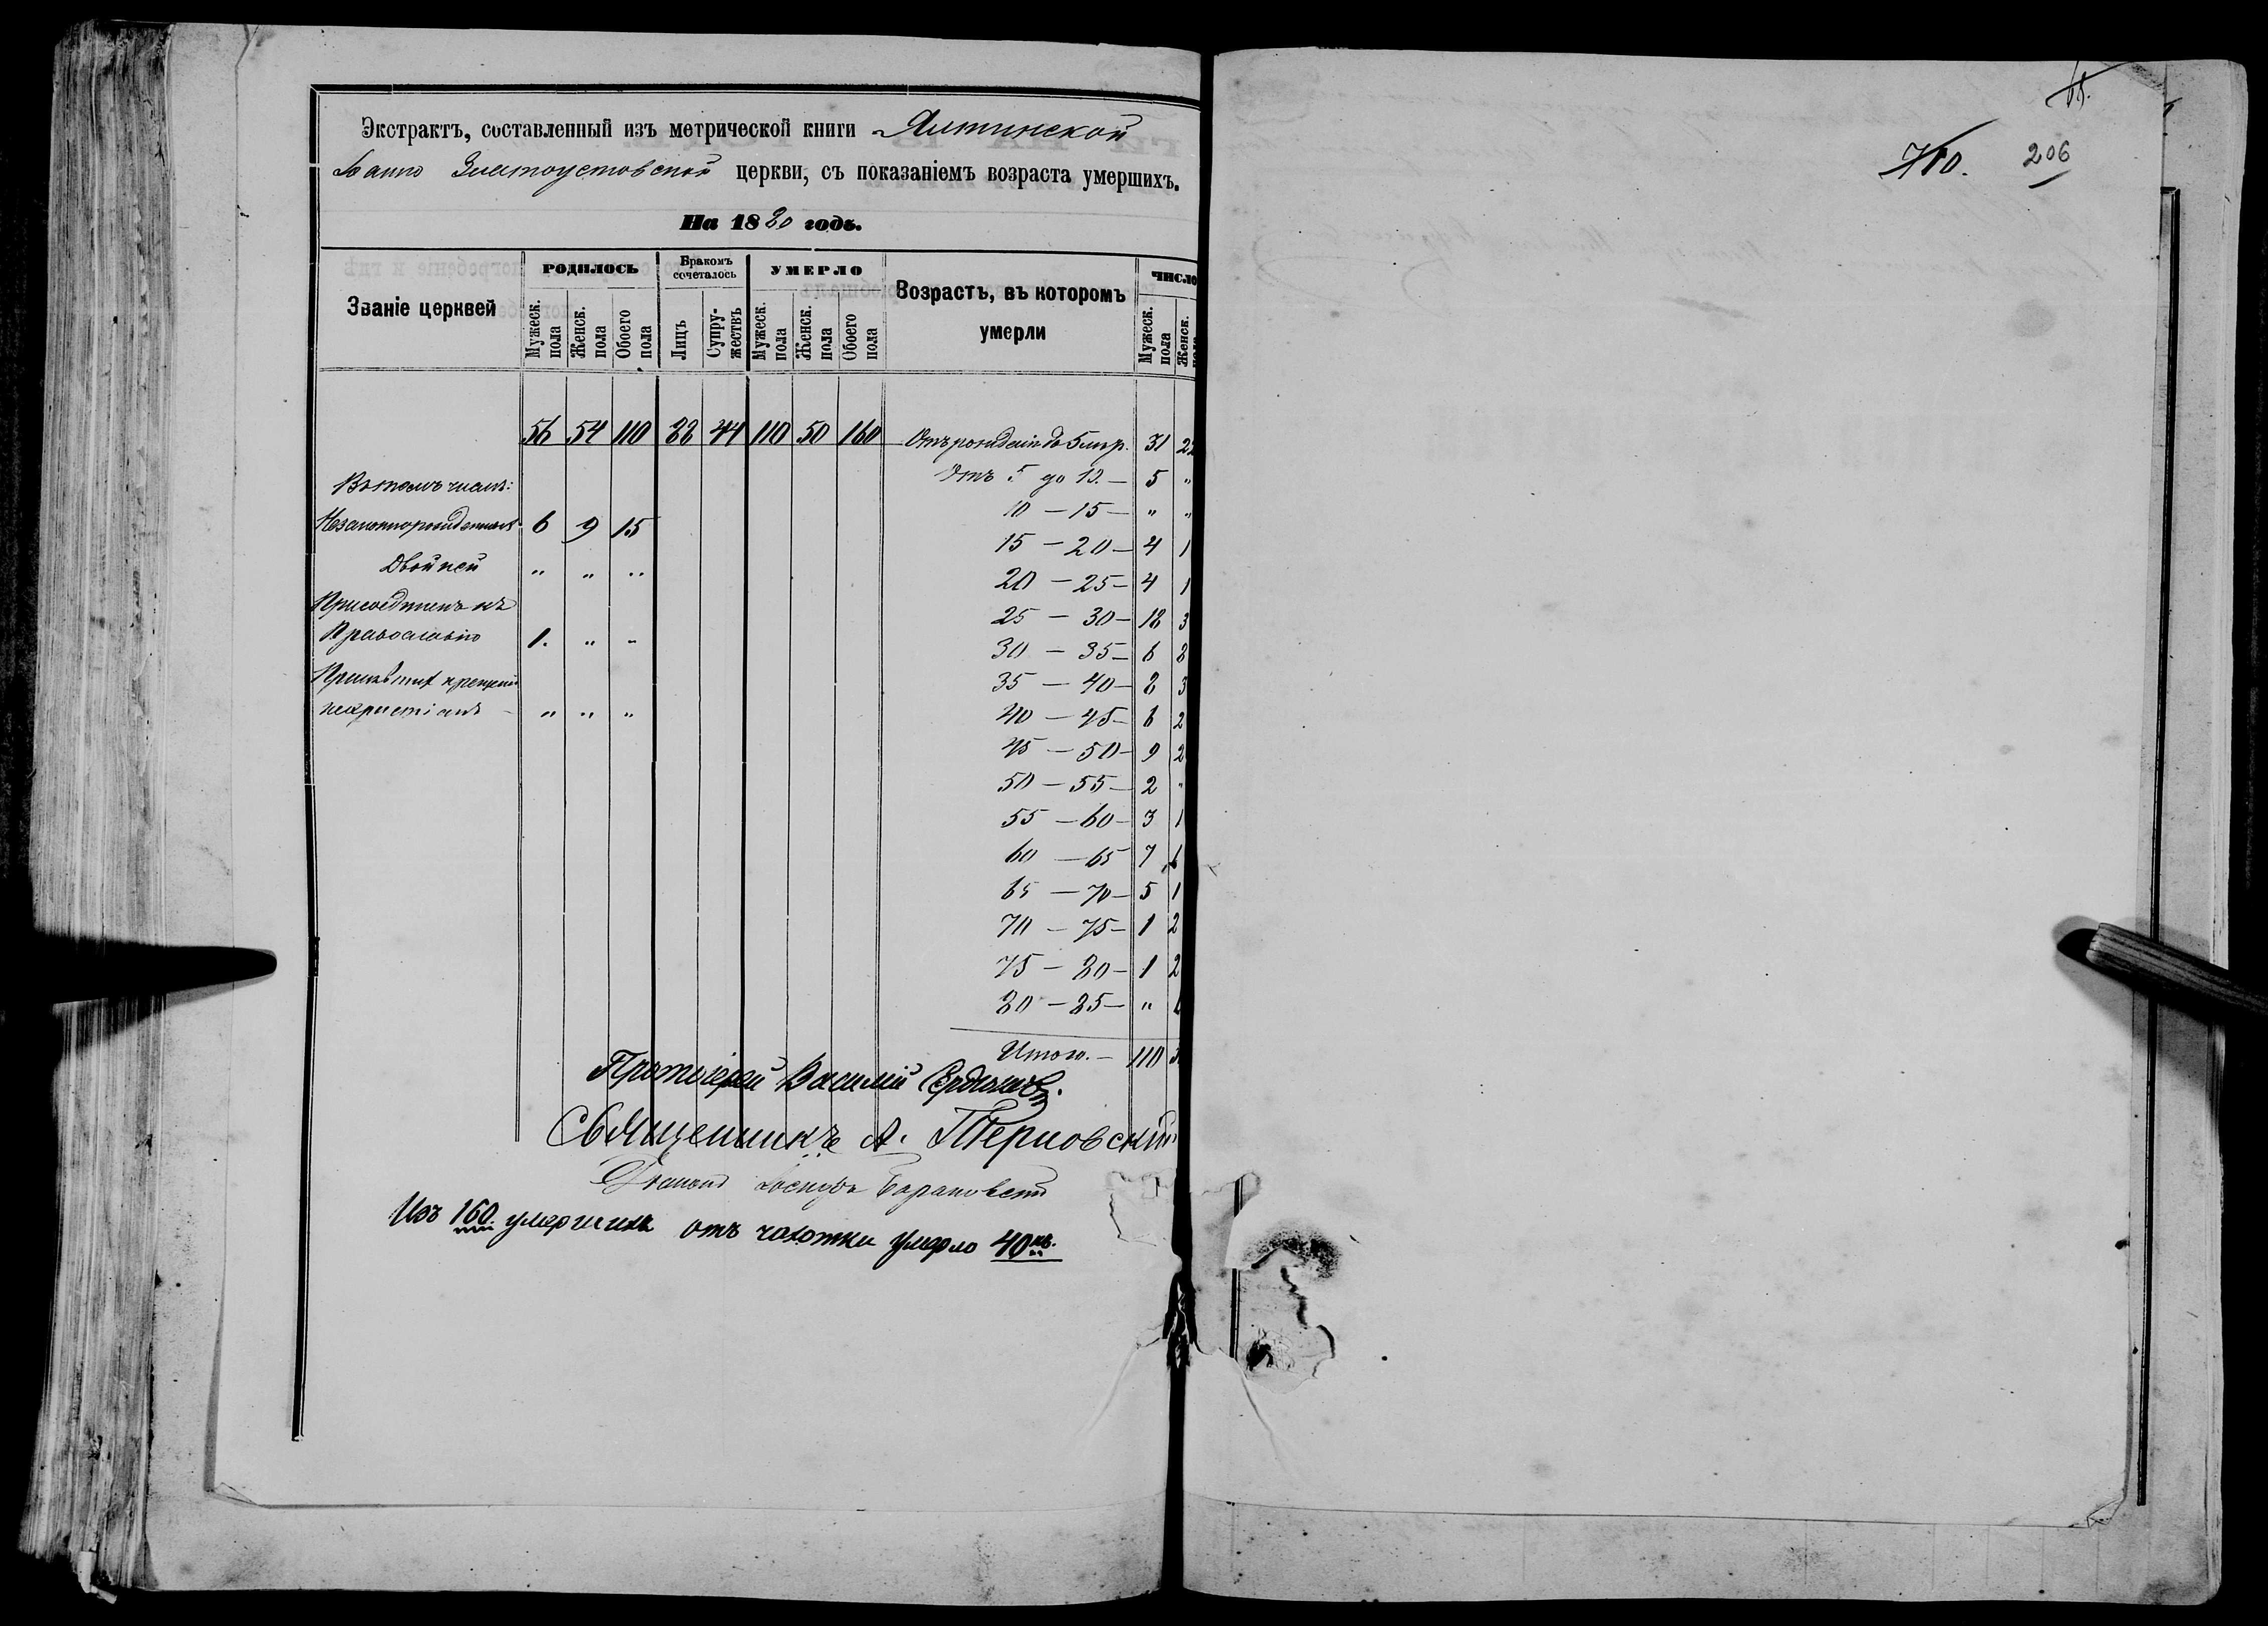 Экстрактъ, составленный изъ метрической книги Ялтинской
Іоанно Златоустовской церкви, съ показаніемъ возраста умершихъ.
На 1880 годъ.
Званіе церквей
РОДИЛОСЬ
Бракомъ сочеталось
УМЕРЛО
Возрастъ, въ которомъ умерли
ЧИСЛО
Мужеск. пола Женск. пола Обоего пола Лицъ Супружествъ Мужеск. пола Женск. пола Обоего пола Мужеск. пола Женск.
56 54 110 88 44 110 50 160 Отъ рожденія до 5 лѣтъ. 31
Отъ 5 до 10. — 5 "
Въ томъ числѣ:
10 — 15 — " "
Незаконнорожденныхъ 6 9 15
15 — 20 — 4 1
Двойней " " "
20 — 25 — 4 1
Присоединено къ
25 — 30 — 18 3
Православію 1. " "
30 — 35 — 6 8
Принявшихъ крещеніе
35 — 40 — 8 3
нехристіанъ — " " "
40 — 45 — 6 2
45 — 50 — 9 2
50 — 55 — 2 "
55 — 60 — 3 1
60 — 65 7
65 — 70 — 5 1
70 — 75 — 1 2
75 — 80 — 1 2
80 — 85 — "
Итого. — 110
Протоіерей Василій
Священникъ А. Терновскій
Діаконъ Іосифъ Барановскій
Изъ 160 умершихъ отъ чахотки умерло 40
710.
206